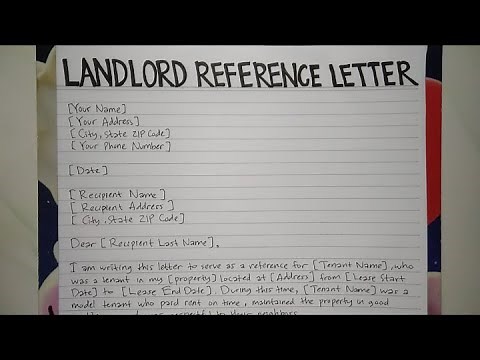 LANDLORD REFERENCE LETTER
[Your Name]
[Your Address]
[City, State ZIP Code]
[Your Phone Number]
[Date]
[Recipient Name]
[Recipient Address]
[City, State ZIP Code]
Dear [Recipient Last Name],
I am writing this letter to serve as a reference for [Tenant Name], who
was a tenant in my [property] located at [Address] from [Lease Start
Date] to [Lease End Date]. During this time, [Tenant Name] was a
model tenant who paid rent on time, maintained the property in good